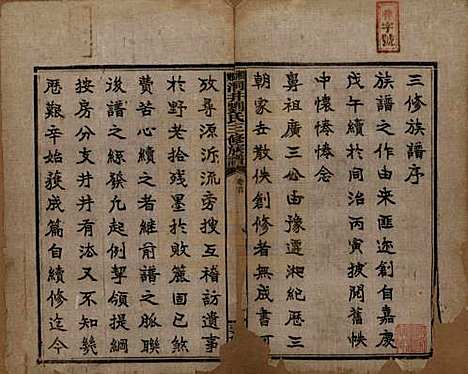 三修族譜序
族譜之作由來匪迩創自嘉慶
戊午續於同治丙寅披閱舊帙
中懷惓惓念
鼻祖廣三公由豫遷湘紀歷三
朝家乗散佚創修者無成書可
洞井劉氏三修族譜
卷首
放尋源泝流旁搜互稽訪遺事
於野老拾殘墨於敗簏固已煞
費苦心續之者維前譜之脈聯
後譜之絲發凡起例挈領提綱
按房分支井井有法又不知幾
歷艱辛始獲成篇自續修迄今